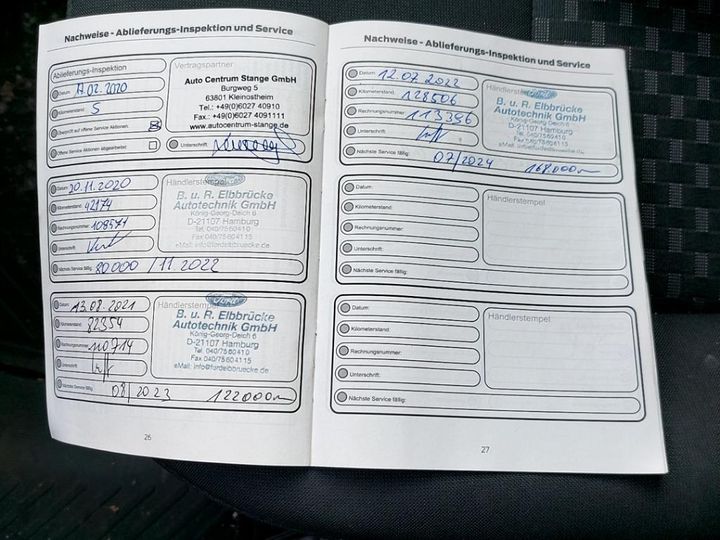 Nachweise - Ablieferungs-Inspektion und Service
Ablieferungs-Inspektion
Datum: 17.02.2020
Kilometerstand: 5
Geprüft auf offene Service Aktionen:
Offene Service Aktionen abgearbeitet:
Vertragspartner
Auto Centrum Stange GmbH
Burgweg 5
63801 Kleinostheim
Tel.: +49(0)6027 40910
Fax.: +49(0)6027 4091111
www.autocentrum-stange.de
Unterschrift:
Datum: 20.11.2020
Kilometerstand: 42174
Rechnungsnummer: 108571
Unterschrift:
Nächste Service fällig: 80000 / 11.2022
Händlerstempel
B. u. R. Elbbrücke
Autotechnik GmbH
König-Georg-Deich 6
D-21107 Hamburg
Tel. 040/75 60 41 0
Fax 040/75 60 41 15
eMail: info@fordelbbruecke.de
Datum: 13.08.2021
Kilometerstand: 82354
Rechnungsnummer: 110714
Unterschrift:
Nächste Service fällig: 08/2023 122000km
Händlerstempel
Ford
B. u. R. Elbbrücke
Autotechnik GmbH
König-Georg-Deich 6
D-21107 Hamburg
Tel. 040/75 60 41 0
Fax 040/75 60 41 15
eMail: info@fordelbbruecke.de
26
Nachweise - Ablieferungs-Inspektion und Service
Datum: 12.07.2022
Kilometerstand: 128506
Rechnungsnummer: 113356
Unterschrift:
Nächste Service fällig: 07/2024 168000km
Händlerstempel
Ford
B. u. R. Elbbrücke
Autotechnik GmbH
König-Georg-Deich 6
D-21107 Hamburg
Tel. 040/75 60 41 0
Fax 040/75 60 41 15
eMail: info@fordelbbruecke.de
Datum:
Kilometerstand:
Rechnungsnummer:
Unterschrift:
Nächste Service fällig:
Händlerstempel
Datum:
Kilometerstand:
Rechnungsnummer:
Unterschrift:
Nächste Service fällig:
Händlerstempel
27